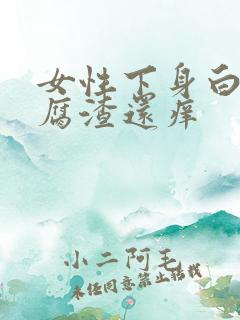 女性下身白
腐渣還痒
小二阿毛
未经同意禁止搭载